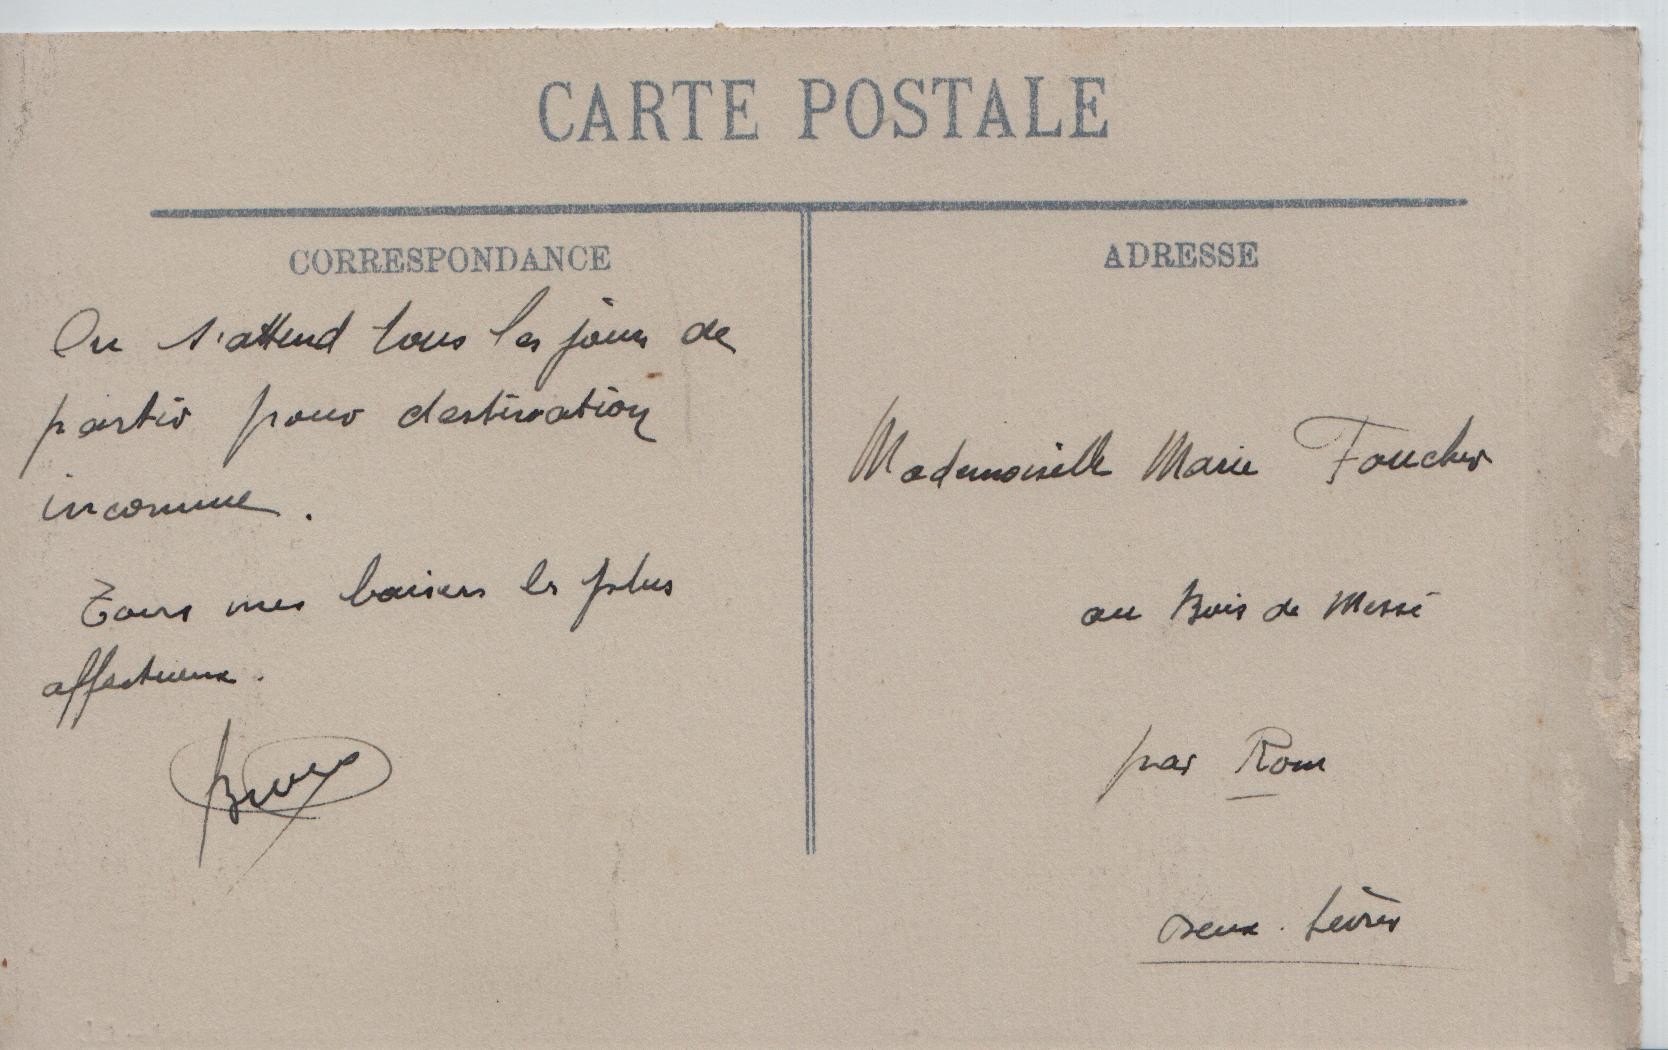 CARTE POSTALE
CORRESPONDANCE
On s'attend tous les jours de
partir pour destination
inconnue.
Tous mes baisers les plus
affectueux.
ADRESSE
Mademoiselle Marie Foucher
au Bois de Messé
par Rom
Deux-Sèvres